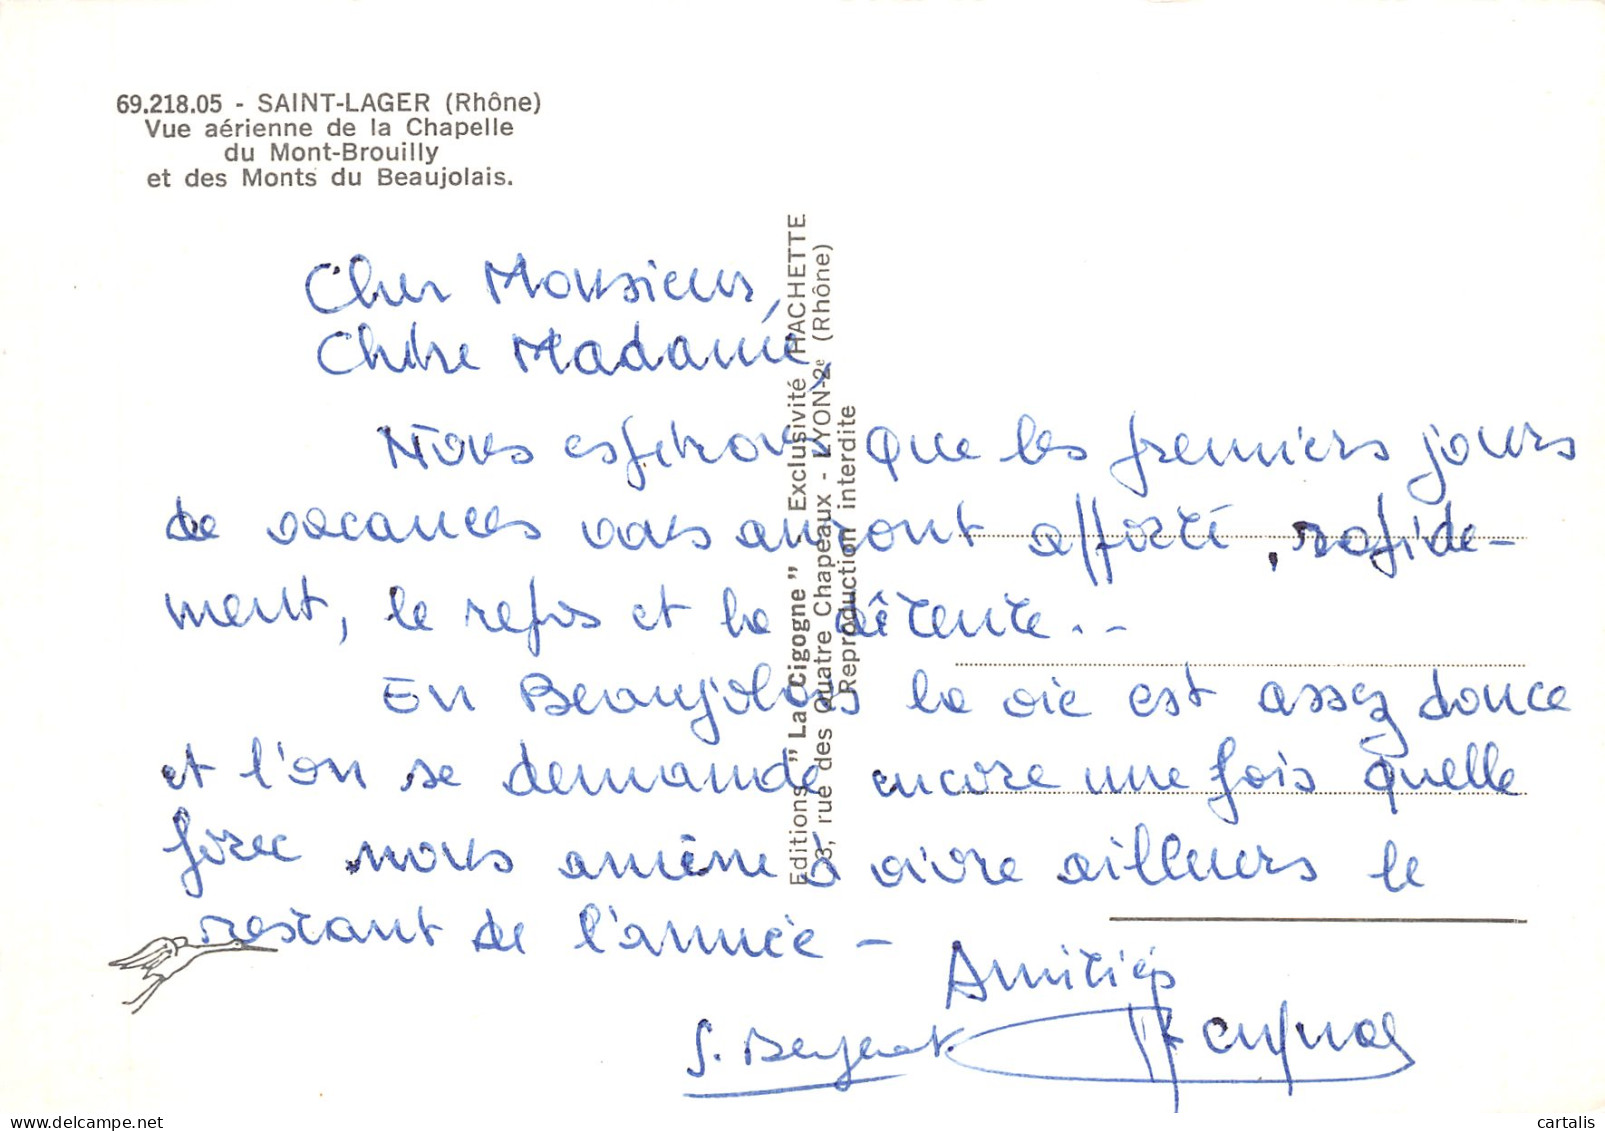 69.218.05 - SAINT-LAGER (Rhône)
Vue aérienne de la Chapelle
du Mont-Brouilly
et des Monts du Beaujolais.
Editions "La Cigogne" - Exclusivité HACHETTE
23, rue des Quatre Chapeaux - LYON-2e (Rhône)
Reproduction interdite
Cher Monsieur,
Chère Madame,
Nous espérons que les premiers jours
de vacances vous auront apporté, rapide-
ment, le repos et la détente..
En Beaujolais la vie est assez douce
et l'on se demande encore une fois quelle
force nous amène à vivre ailleurs le
restant de l'année -
Amitiés
S.
cartalis